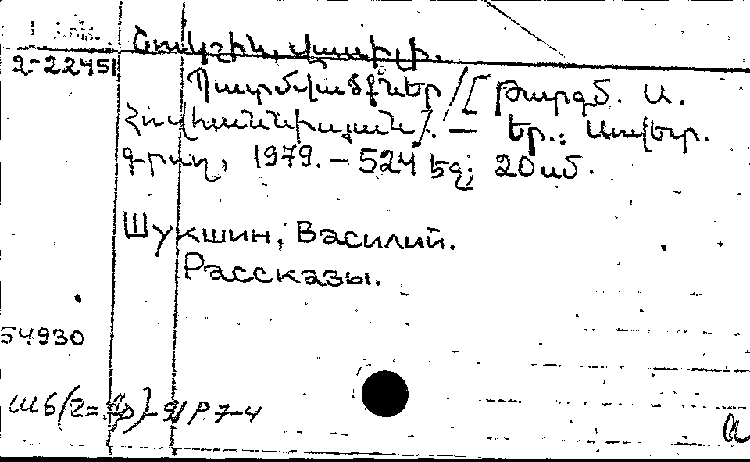 Շուկշին, Վասիլի.
2-22451
Պատմվածքներ / [Թարգմ. Ա.
Հովհաննիսյան]. — Եր.: Սովետ.
գրող, 1979. – 524 եզ; 20 սմ.
Шукшин, Василий.
Рассказы.
54930
Ш6(2=Ар)-91 Р7-4